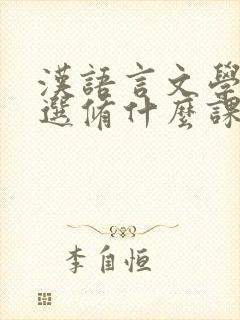 漢語言文學
選脩什麼課
李自恒